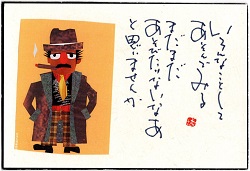 いろんなことして
あそんでみる
まだまだ
あそびたりないなあ
と思いませんか